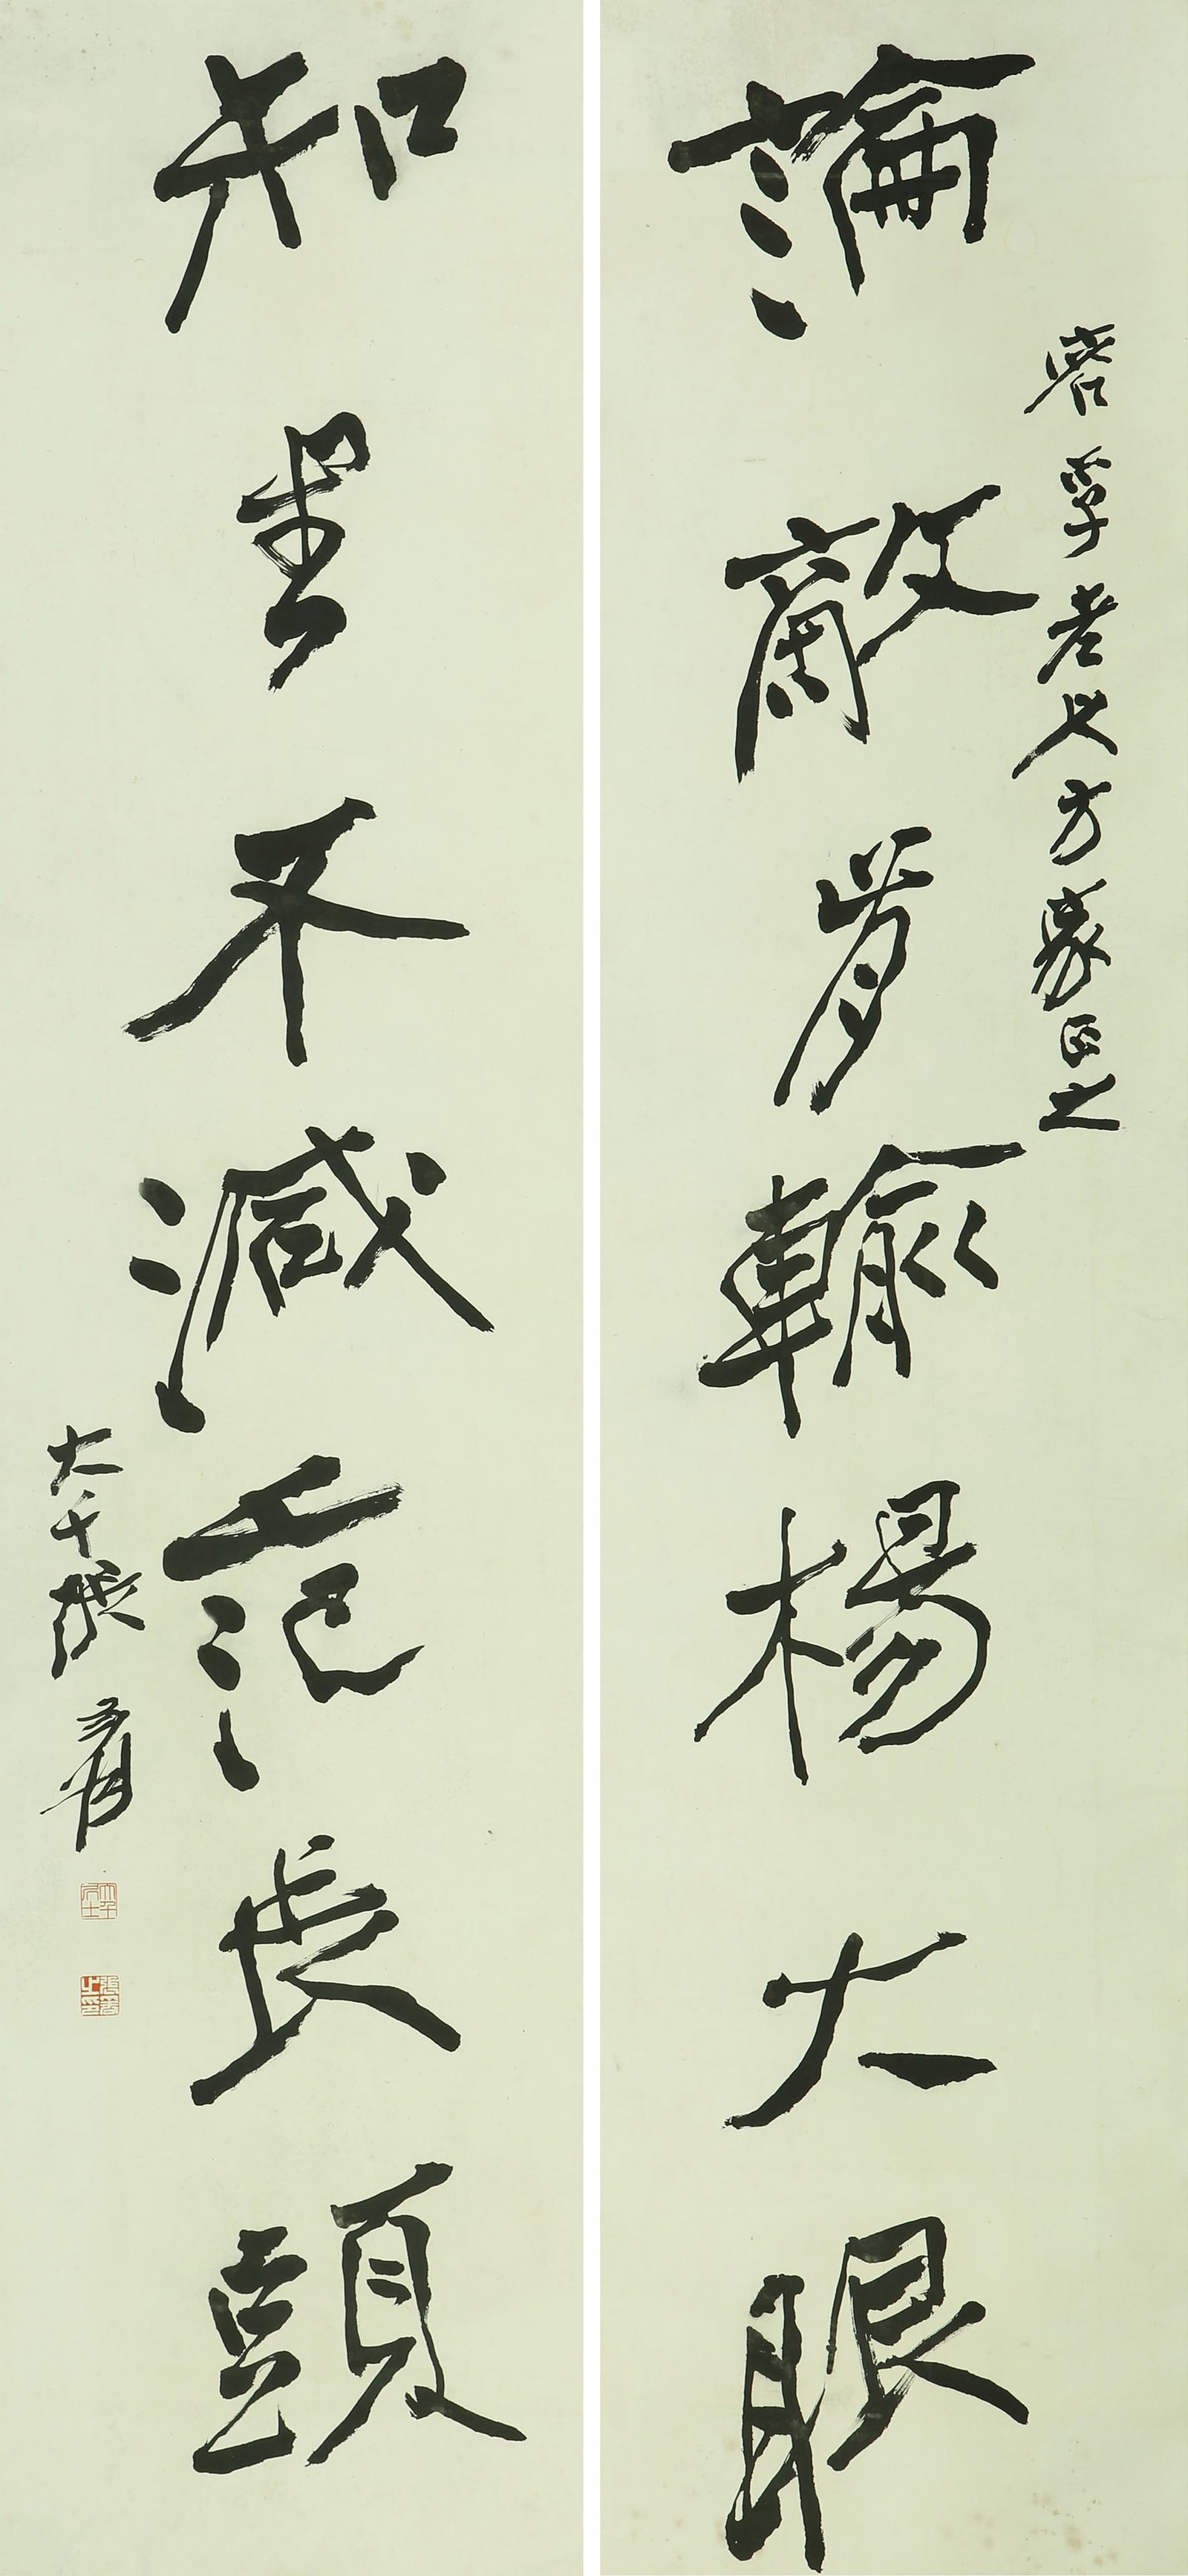 論敵肯輸楊大眼
孚老兄方家正之
知書不減范長頭
大千張爰
大千居士
張爰之印